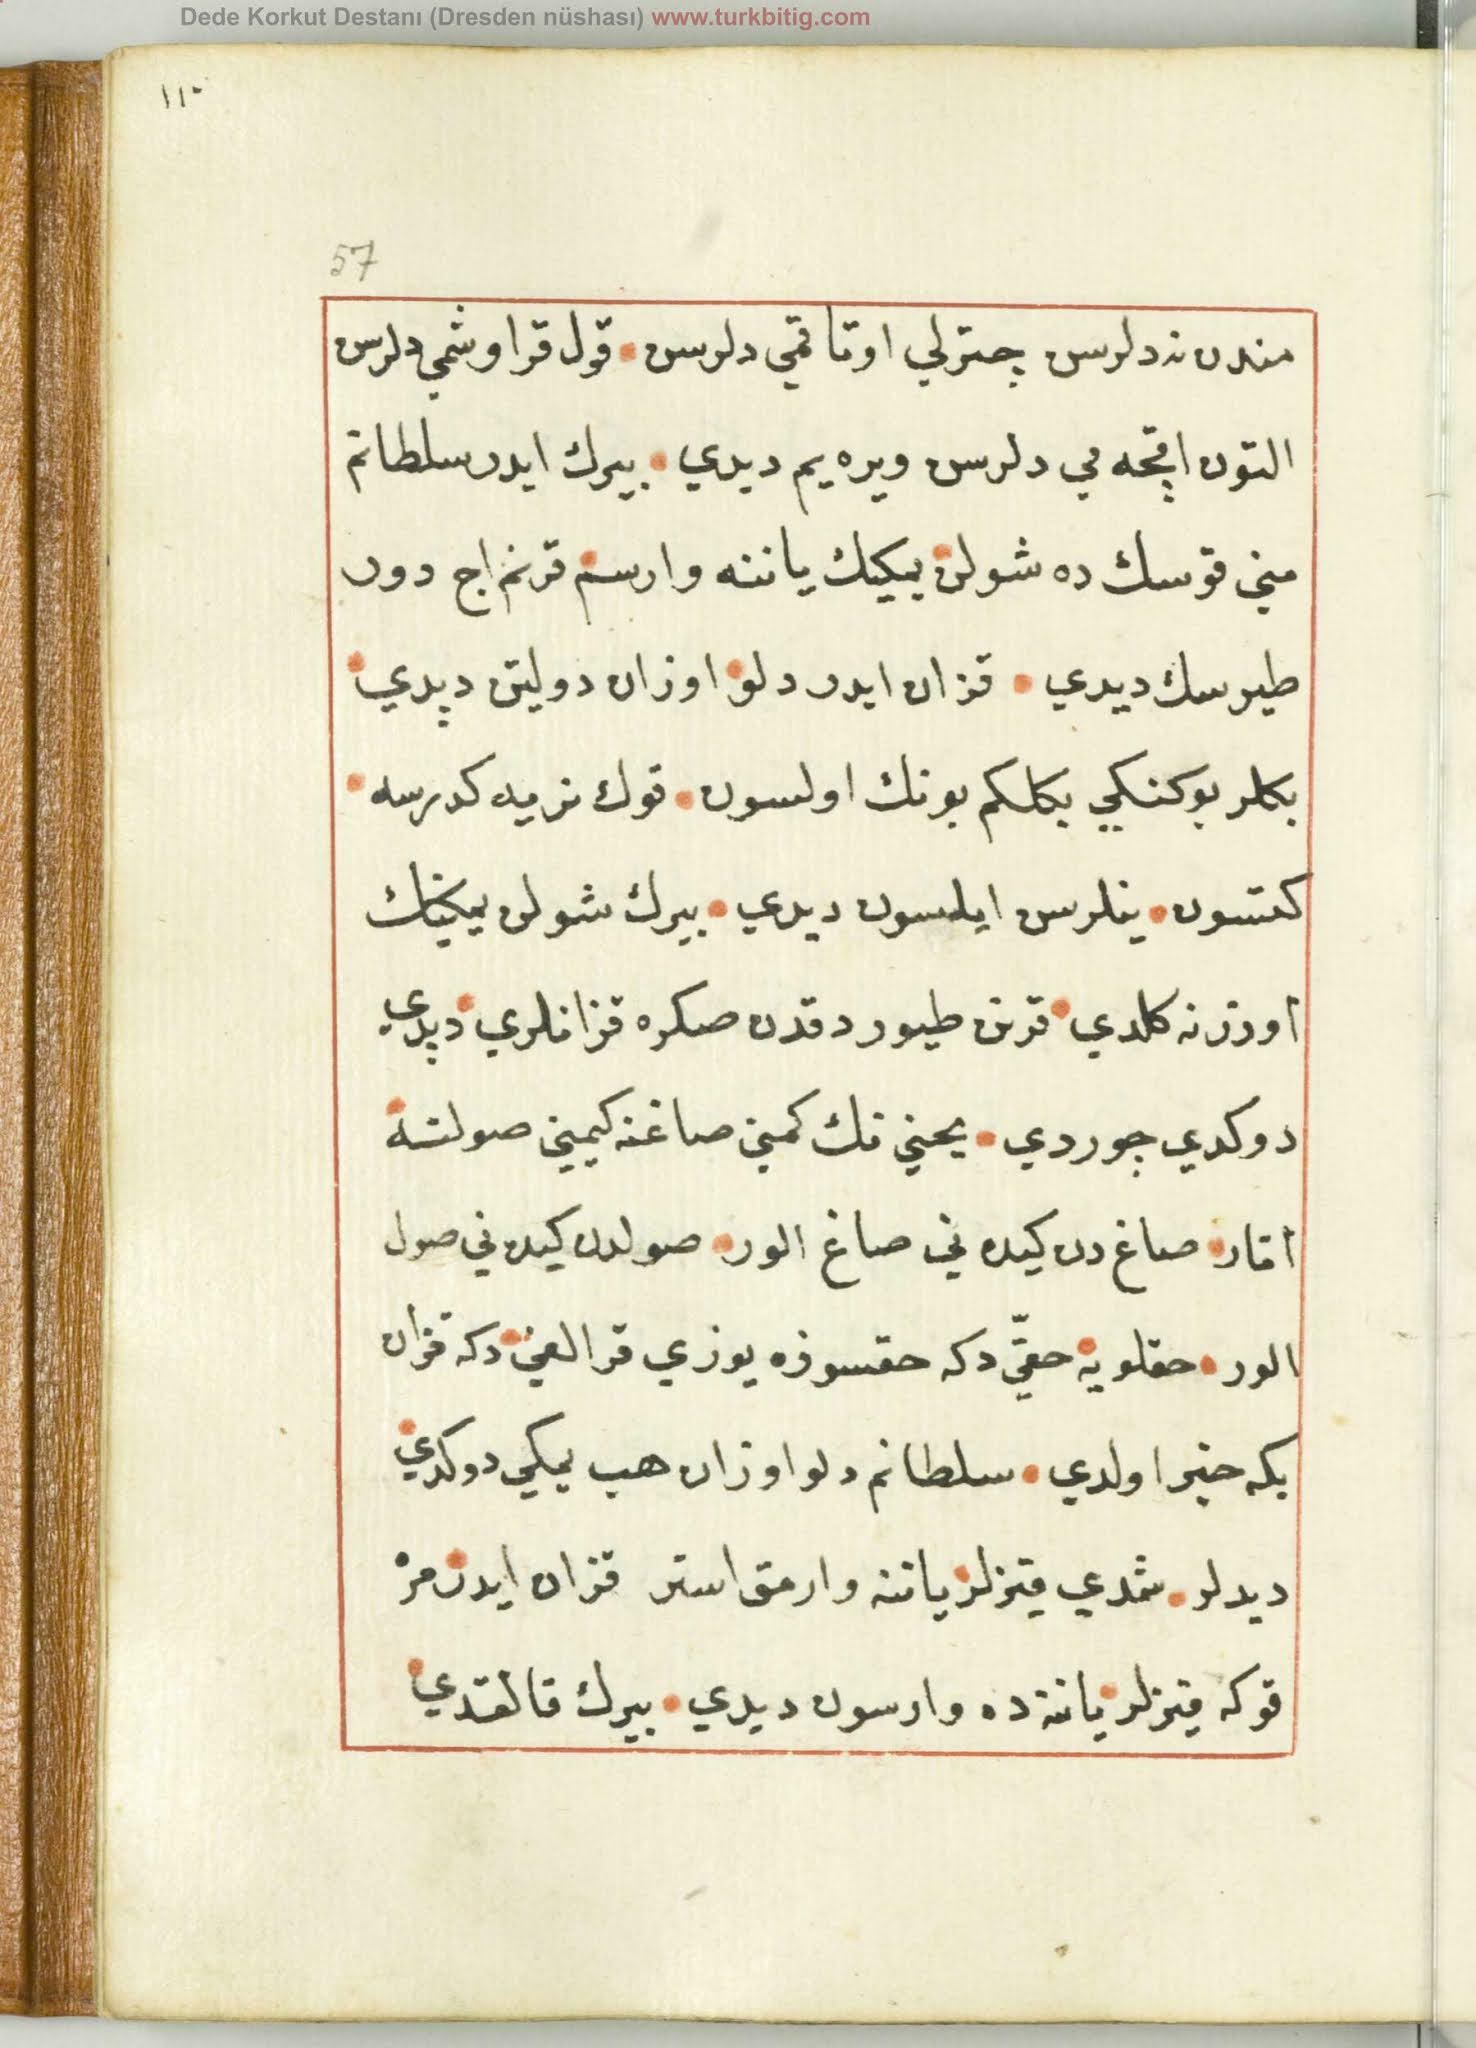 Dede Korkut Destanı (Dresden nüshası) www.turkbitig.com
١١٠
57
مندن نه دلرسن چترلي اوتاقمي دلرسن • قول قراوشمي دلرسن
التون اقچه مي دلرسن ويره يم ديدي • بيرك ايدر سلطانم
مني قوسك ده شولن يمكينك ياننه وارسم قرنم اج دور
طيورسك ديدي • قزان ايدر دلو اوزان دولتن دپدي
بكلر بوكنكي بكلكم بونك اولسون • قوك نريه كدرسه
كتسون • ينلرسن ايلسون ديدي • بيرك شولن يمكينك
اوزرنه كلدي • قرنن طيوردقدن صكره قزانلري دپدي
دوكدي چوردي • يخني نك كمني صاغنه كيميني صولنه
اتار • صاغ دن كيده ني صاغ الور • صولدن كيده ني صول
الور • حقلويه حقّي دكه حقسوزه يوزي قرالغي دكه قزان
بكه خبر اولدي • سلطانم دلو اوزان هب يمكي دوكدي
ديدلر • شمدي قيزلر ياننه وارمق استر قزان ايدر مرْ
قوكه قيزلر ياننه ده وارسون ديدي • بيرك قالقدي